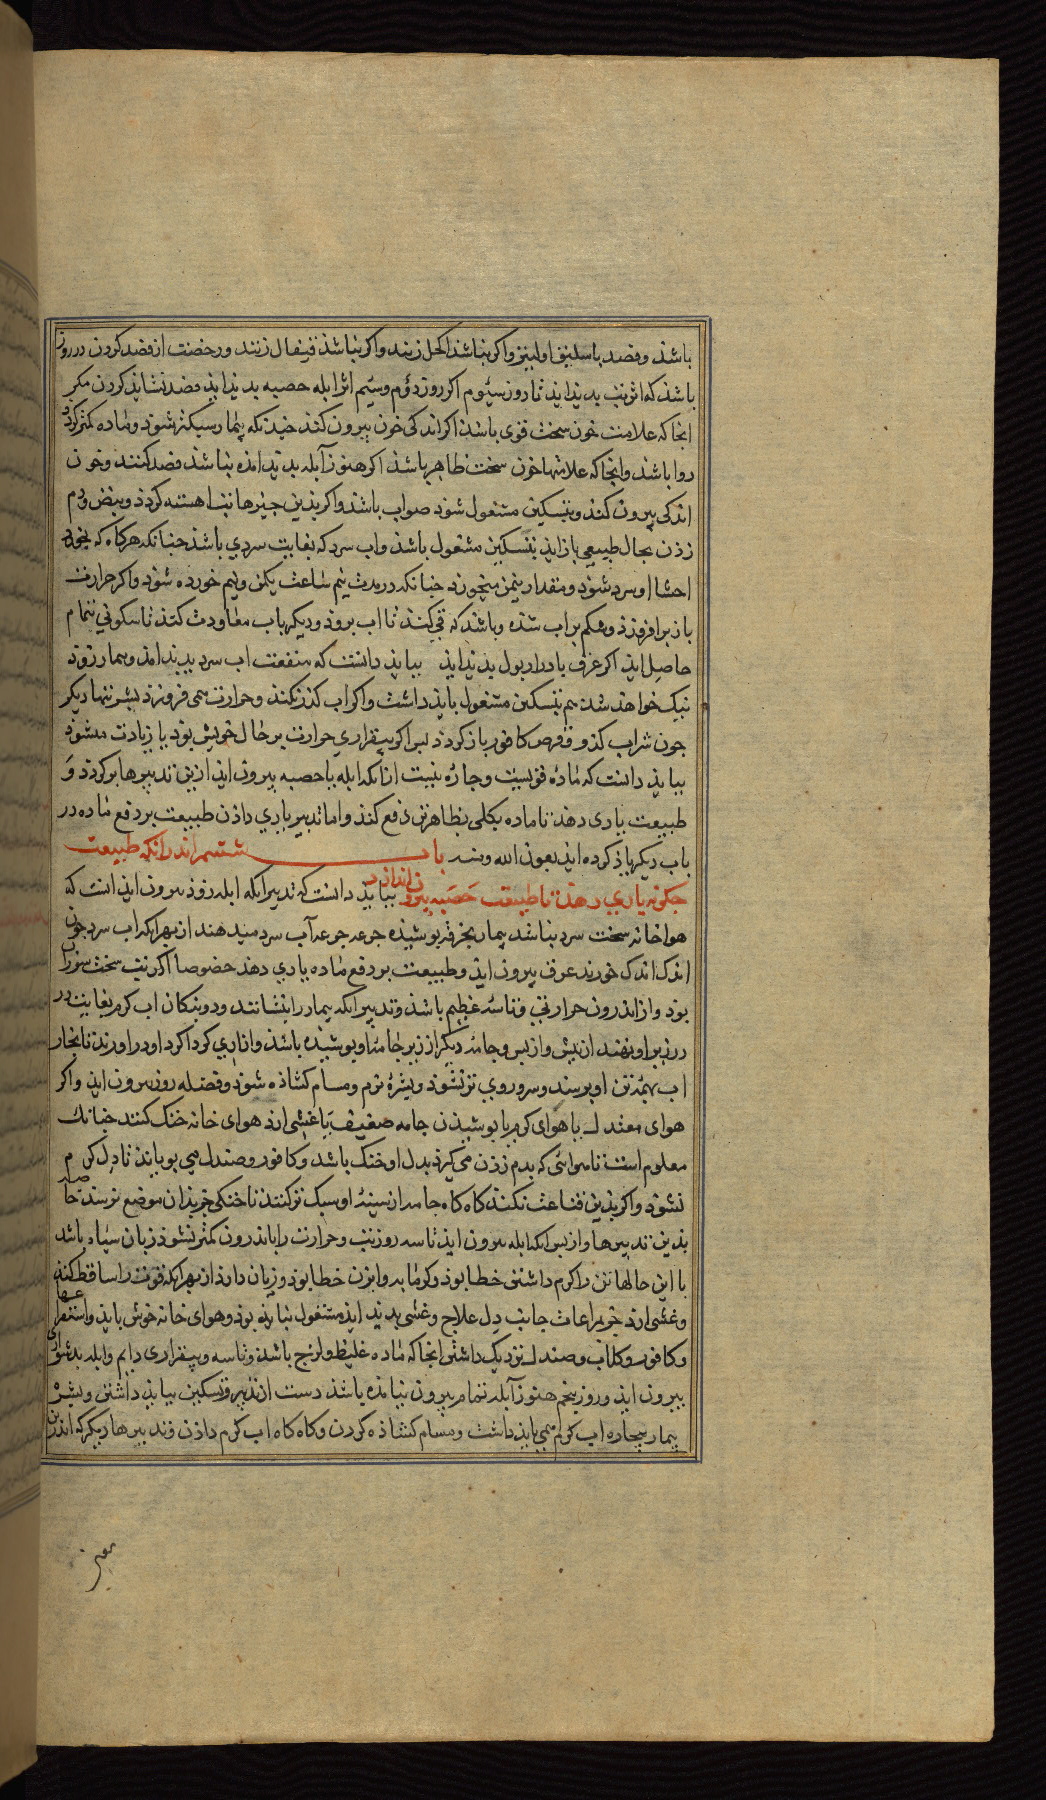 باشذ و فصد باسلیق اولیتر و اکر نباشذ اکحل زنند و اکر نباشذ قیفال زنند و رخصت از فصد کردن در روز
باشذ که اثر تب بدیذ ایذ تا روز سیوم اکر روز دوم و سیم اثر ابله حصبه بدیذ ایذ فصد نشایذ کردن مکر
انجا که علامت خون سخت قوی باشذ اکر اندکی خون بیرون کنند جندانکه بیمار سبکتر شوذ و ماده کمتر کردد
روا باشذ و انجا که علامتها خون سخت ظاهر باشذ اکر هنوز آبله بدیذ امذه نباشذ فصد کنند و خون
اندکی بیرون کنند و بتسکین مشغول شوند صواب باشذ و اکر بذین جیزها تب اهسته کردذ و نبض و دم
زدن بحال طبیعی باز ایذ بتسکین مشغول باشذ و اب سرد که بغایت سردی باشذ جنانکه هرکاه که بخورد
احشا او سرد شوذ و مقدار یکمن میخورد جنانکه در مدت نیم ساعت یکمن و نیم خورده شوذ و اکر حرارت
باز برافروزذ و شکم براب شده و باشذ که قی کند تا اب بروذ و دیکر باب معاودت کند تا سکونی تمام
حاصل ایذ اکر عرق یا درار بول بدیذ ایذ ببایذ دانست که منفعت اب سرد بدیذ امذ و بیمار زوذ
نیک خواهد شذ هم بتسکین مشغول بایذ داشت و اکر اب کذر نکند و حرارت می فروزذ بشربتها دیکر
جون شراب کدو و قرص کافور باز کردد بس اکر بیقراری حرارت بر حال خویش بوذ یا زیادت میشوذ
ببایذ دانست که ماده قویست و جاره نیست ازانکه ابله یا حصبه بیرون ایذ ازین تدبیرها بر کردد و
طبیعت یاری دهذ تا ماده بکلی بظاهر تن دفع کند و اما تدبیر یاری داذن طبیعت بر دفع ماده در
باب دیکر یاذ کرده ایذ بعون الله و منه باب ششم اندر انکه طبیعت
جکونه یاری دهند تا طبیعت حصبه بیرون اندازد ببایذ دانست که تدبیر انکه ابله زوذ بیرون ایذ انست که
هوا خانه سخت سرد نباشذ بیمار بخرقه بوشیذه جرعه جرعه آب سرد میدهند از بهر انکه اب سرد جون
اندک اندک خورند عرق بیرون ایذ و طبیعت بر دفع ماده یاری دهذ خصوصا اکر تب سخت سوزان
بوذ و از اندرون حرارتی و تاسه عظیم باشذ و تدبیر انکه بیمار را بنشانند و دو بنکان اب کرم بغایت در
در زیر او نهند از بیش و از بس و جامه دیکر از زیر جامه او بوشیذه باشذ و ازاری کرداکرد او درآورند تا بخار
اب بهمه تن او برسد و سر و روی تر نشوذ و بشره نرم و مسام کشاذه شوذ و فضله زوذ بیرون ایذ و اکر
هوای معتدل یا هوای کرم با بوشیذن جامه ضعیف یا غشی ارذ هوای خانه خنک کنند جنانک
معلوم است تا هوائی که بدم زدن می کیرد بدل او خنک باشد و کافور و صندل می بویاند تا دل کرم
نشوذ و اکر بذین قناعت نکند کاه کاه جامه از سینه او سبک تر کنند تا خنکی جز بذان موضع نرسد حاصل
بذین تدبیرها و از بس انکه ابله بیرون ایذ تا سه روز تب و حرارت را باندرون کمتر نشوذ زبان سیاه باشد
با این حالها تن را کرم داشتن خطا بوذ و کرمابه و ابزن خطا بوذ و زیان دارذ از بهر انکه قوت را ساقط کند
و غشی ارذ جز مراعات جانب دل علاج و غشی بدیذ ایذ مشغول نبایذ بوذ و هوای خانه خوش بایذ و استفراغها
و کافور و کلاب و صندل نزدیک داشتن انجا که ماده غلیظ و لزج باشذ و تاسه و بیقراری دایم و ابله بدشواری
بیرون ایذ و روز پنجم هنوز آبله تمام بیرون نیامذه باشذ دست از تبرید و تسکین ببایذ داشتن و بشره
بیمار بیجاره اب کرم می بایذ داشت و مسام کشاذه کردن و کاه کاه اب کرم داذن و تدبیرها دیکر که اندرین